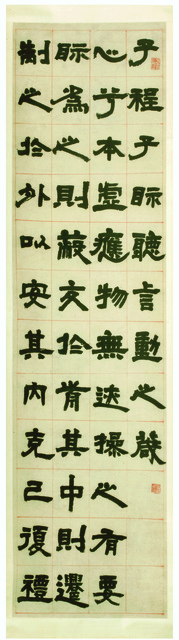 子程子眎聽言動之箴
心兮本虛應物無迹操之有要
眎爲之則蔽交於歬其中則遷
制之於外以安其内克己復禮